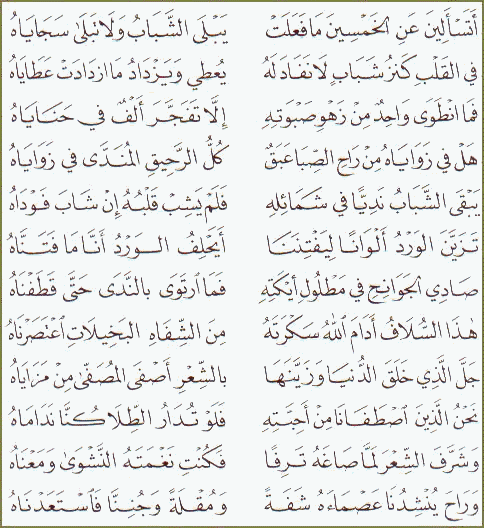 أَتَسْأَلِينَ عَنِ الخَمْسِينَ مَا فَعَلَتْ يَبْلَى الشَّبَابُ وَلَا تَبْلَى سَجَايَاهُ
في القَلْبِ كَنْزُ شَبَابٍ لَا نَفَادَ لَهُ يُعْطِي وَيَزْدَادُ مَا ازْدَادَتْ عَطَايَاهُ
فَمَا انْطَوَى وَاحِدٌ مِنْ زَهْوِ صَبْوَتِهِ إِلَّا تَفَجَّرَ أَلْفٌ في حَنَايَاهُ
هَلْ في زَوَايَاهُ مِنْ رَاحِ الصِّبَا عَبَقٌ كُلُّ الرَّحِيقِ المُنَدَّى في زَوَايَاهُ
يَبْقَى الشَّبَابُ نَدِيًّا في شَمَائِلِهِ فَلَمْ يَشِبْ قَلْبُهُ إِنْ شَابَ فَوْدَاهُ
تَزَيَّنَ الوَرْدُ أَلْوَانًا لِيَفْتِنَنَا أَيَحْلِفُ الوَرْدُ أَنَّا مَا فَتَنَّاهُ
صَادِي الجَوَانِحِ في مَطْلُولِ أَيْكَتِهِ فَمَا ارْتَوَى بِالنَّدَى حَتَّى قَطَفْنَاهُ
هٰذَا السُّلَافُ أَدَامَ اللهُ سَكْرَتَهُ مِنَ الشِّفَاهِ البَخِيلَاتِ اعْتَصَرْنَاهُ
جَلَّ الَّذِي خَلَقَ الدُّنْيَا وَزَيَّنَهَا بِالشِّعْرِ أَصْفَى المُصَفَّى مِنْ مَزَايَاهُ
نَحْنُ الَّذِينَ اصْطَفَانَا مِنْ أَحِبَّتِهِ فَلَوْ تُدَارُ الطِّلَا كُنَّا نَدَامَاهُ
وَشَرَّفَ الشِّعْرَ لَمَّا صَاغَهُ تَرَفًا فَكُنْتِ نَغْمَتَهُ النَّشْوَى وَمَعْنَاهُ
وَرَاحَ يُنْشِدُنَا عَصْمَاءَهُ شَفَةً وَمُقْلَةً وَجُنِنَّا فَاسْتَعَدْنَاهُ